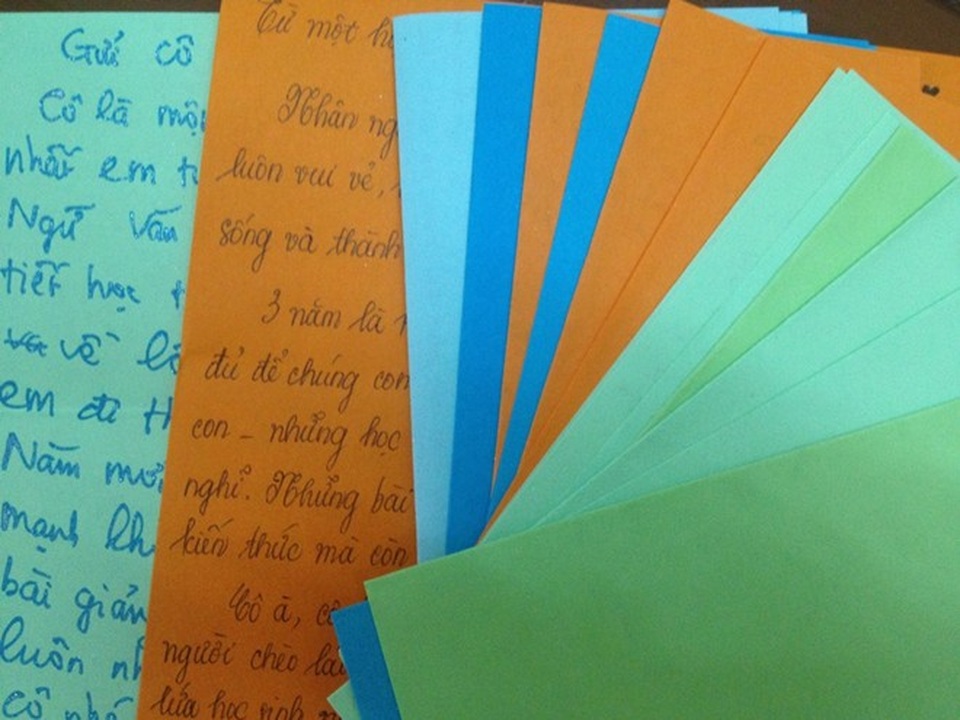 Gửi cô
Cô là một
nhất em t
Ngữ Văn
tiết học t
về l
em đi th
Năm mới
mạnh kh
bài giản
luôn nh
cô nh
Từ một h
Nhân ng
luôn vui vẻ,
sống và thành
3 năm là
đủ để chúng con
con - những học
nghĩ. Những bài
kiến thức mà còn
Cô à, cô
người chèo lái
lứa học sinh